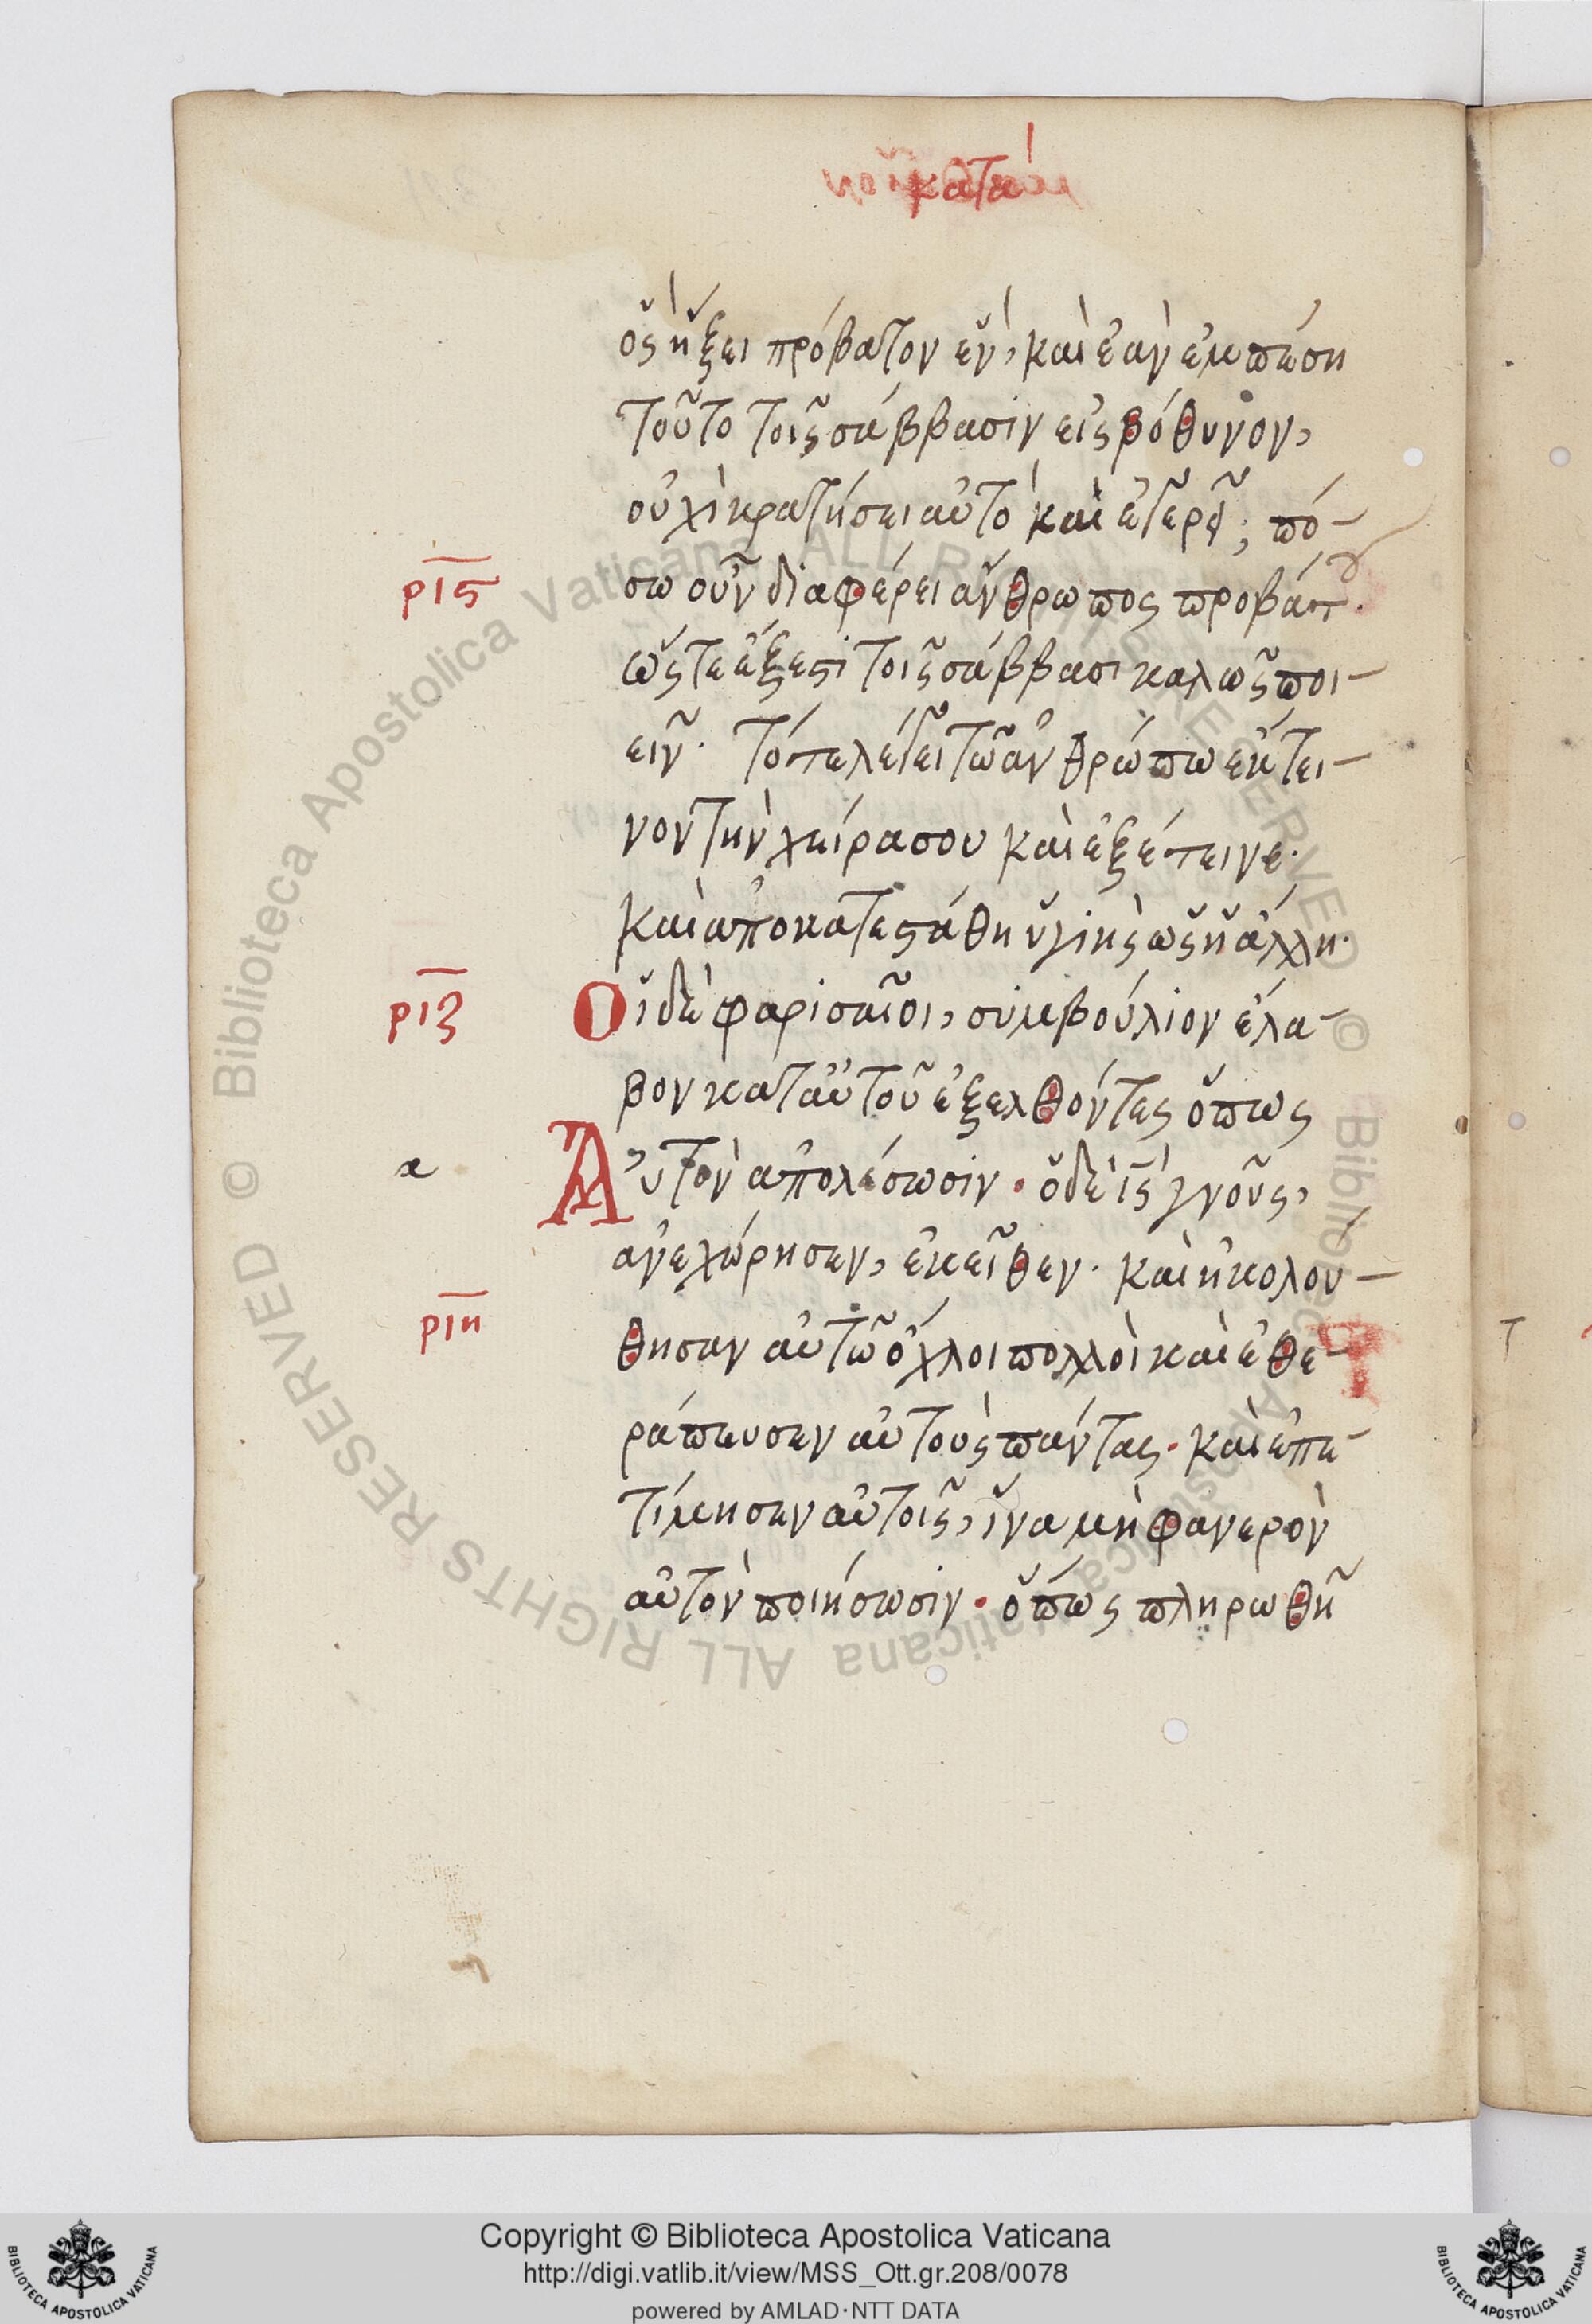 κατὰ
ὃς ἥξει πρόβατον ἓν, καὶ ἐὰν ἐμπέση
τοῦτο τοῖς σάββασιν εἰς βόθυνον,
οὐχὶ κρατήσει αὐτὸ καὶ ἐγερεῖ; πό-
ριϛ
σω οὖν διαφέρει ἄνθρωπος προβάτου.
ὥστε ἔξεστι τοῖς σάββασι καλῶς ποι-
εῖν. τότε λέγει τῶ ἀνθρώπω ἔκτει-
νον τὴν χεῖρα σου καὶ ἐξέτεινε.
καὶ ἀποκατεστάθη ὑγιὴς ὡς ἡ ἄλλη.
ριζ
Οἱ δὲ φαρισαῖοι, συμβούλιον ἔλα-
βον κατ αὐτοῦ ἐξελθόντες ὅπως
α
Αὐτὸν ἀπολέσωσιν. ὁ δὲ ις γνοὺς,
ἀνεχώρησεν, ἐκεῖθεν. καὶ ἠκολού-
ριη
θησαν αὐτῶ ὄχλοι πολλοὶ καὶ ἐθε-
ράπευσεν αὐτοὺς πάντας. καὶ ἐπε
τίμησεν αὐτοῖς, ἵνα μὴ φανερὸν
αὐτὸν ποιήσωσιν. ὅπως πληρωθῆ
Copyright © Biblioteca Apostolica Vaticana
http://digi.vatlib.it/view/MSS_Ott.gr.208/0078
powered by AMLAD·NTT DATA
BIBLIOTECA APOSTOLICA VATICANA
BIBLIOTECA APOSTOLICA VATICANA
© Biblioteca Apostolica Vaticana ALL RIGHTS RESERVED
© Biblioteca Apostolica Vaticana ALL RIGHTS RESERVED